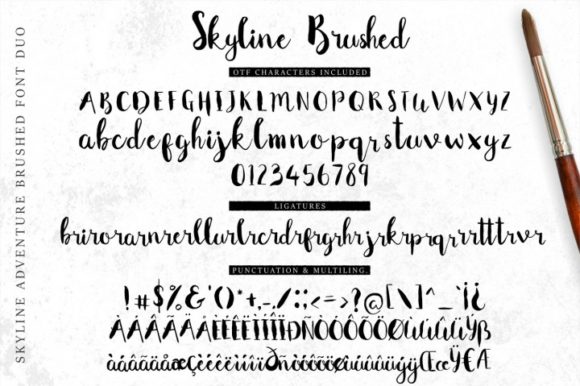 SKYLINE ADVENTURE BRUSHED FONT DUO
Skyline Brushed
OTF CHARACTERS INCLUDED
ABCDEFGHIJKLMNOPQRSTUVWXYZ
abcdefghijklmnopqrstuvwxyz
0123456789
LIGATURES
brirorarnrerllurlrcrdrfrgrhrjrkrprqrrrtttrvr
PUNCTUATION & MULTILING.
!#$%&'()*+,-./:;<=>?©[\]^_`¡¿
ÀÁÂÃÄÅÈÉÊËÌÍÎÏÐÑÒÓÔÕÖØÙÚÛÜÝß
àáâãäåæçèéêëìíîïðñòóôõöøùúûüýÿŒœŸ€Æ